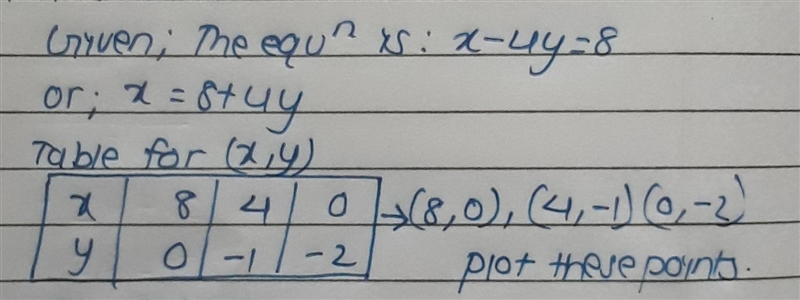 Given; The equⁿ is: x-4y=8
or; x = 8+4y
Table for (x,y)
x 8 4 0 →(8,0), (4,-1)(0,-2)
y 0 -1 -2 plot these points.